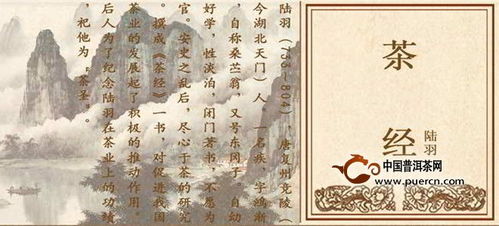 陆羽（733—804），唐复州竟陵（
今湖北天门）人，一名疾，字鸿渐
，自称桑苎翁，又号东冈子。自幼
好学，性淡泊，闭门著书，不愿为
官。安史之乱后，尽心于茶的研究
，撰成《茶经》一书，对促进我国
茶业的发展起了积极的推动作用。
后人为了纪念陆羽在茶业上的功绩
，祀他为“茶圣”。
茶经
陆羽
中国普洱茶网
www.puercn.com